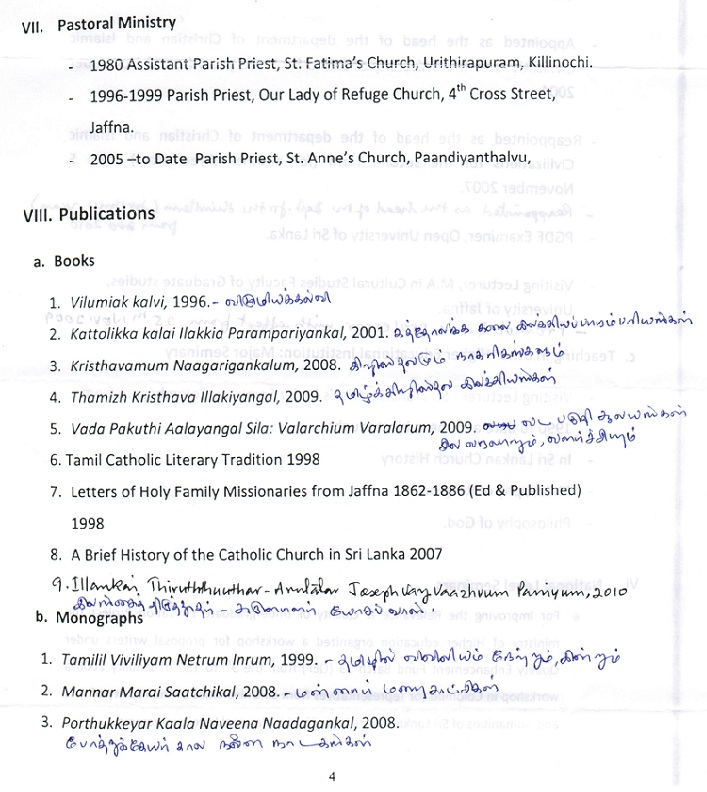 VII. Pastoral Ministry
- 1980 Assistant Parish Priest, St. Fatima's Church, Urithirapuram, Killinochi.
- 1996-1999 Parish Priest, Our Lady of Refuge Church, 4th Cross Street,
Jaffna.
- 2005 –to Date Parish Priest, St. Anne's Church, Paandiyanthalvu,
VIII. Publications
a. Books
1. Vilumiak kalvi, 1996. - விழுமியக்கல்வி
2. Kattolikka kalai Ilakkia Parampariyankal, 2001. கத்தோலிக்க கலை இலக்கியப் பாரம்பரியங்கள்
3. Kristhavamum Naagarigankalum, 2008. கிறிஸ்தவமும் நாகரிகங்களும்
4. Thamizh Kristhava Illakiyangal, 2009. தமிழ்க்கிறிஸ்தவ இலக்கியங்கள்
5. Vada Pakuthi Aalayangal Sila: Valarchium Varalarum, 2009. வட பகுதி ஆலயங்கள்
சில வரலாறும், வளர்ச்சியும்
6. Tamil Catholic Literary Tradition 1998
7. Letters of Holy Family Missionaries from Jaffna 1862-1886 (Ed & Published)
1998
8. A Brief History of the Catholic Church in Sri Lanka 2007
9. Illankai Thiruththuuthar - Arulalar Joseph Vaz Vaazhvum Paniyum, 2010
இலங்கைத் திருத்தூதர் - அருளாளர் யோசப் வாஸ்.
b. Monographs
1. Tamilil Viviliyam Netrum Inrum, 1999. - தமிழில் விவிலியம் நேற்றும், இன்றும்
2. Mannar Marai Saatchikal, 2008. - மன்னார் மறைசாட்சிகள்
3. Porthukkeyar Kaala Naveena Naadagankal, 2008.
போத்துக்கேயர் கால நவீன நாடகங்கள்
4